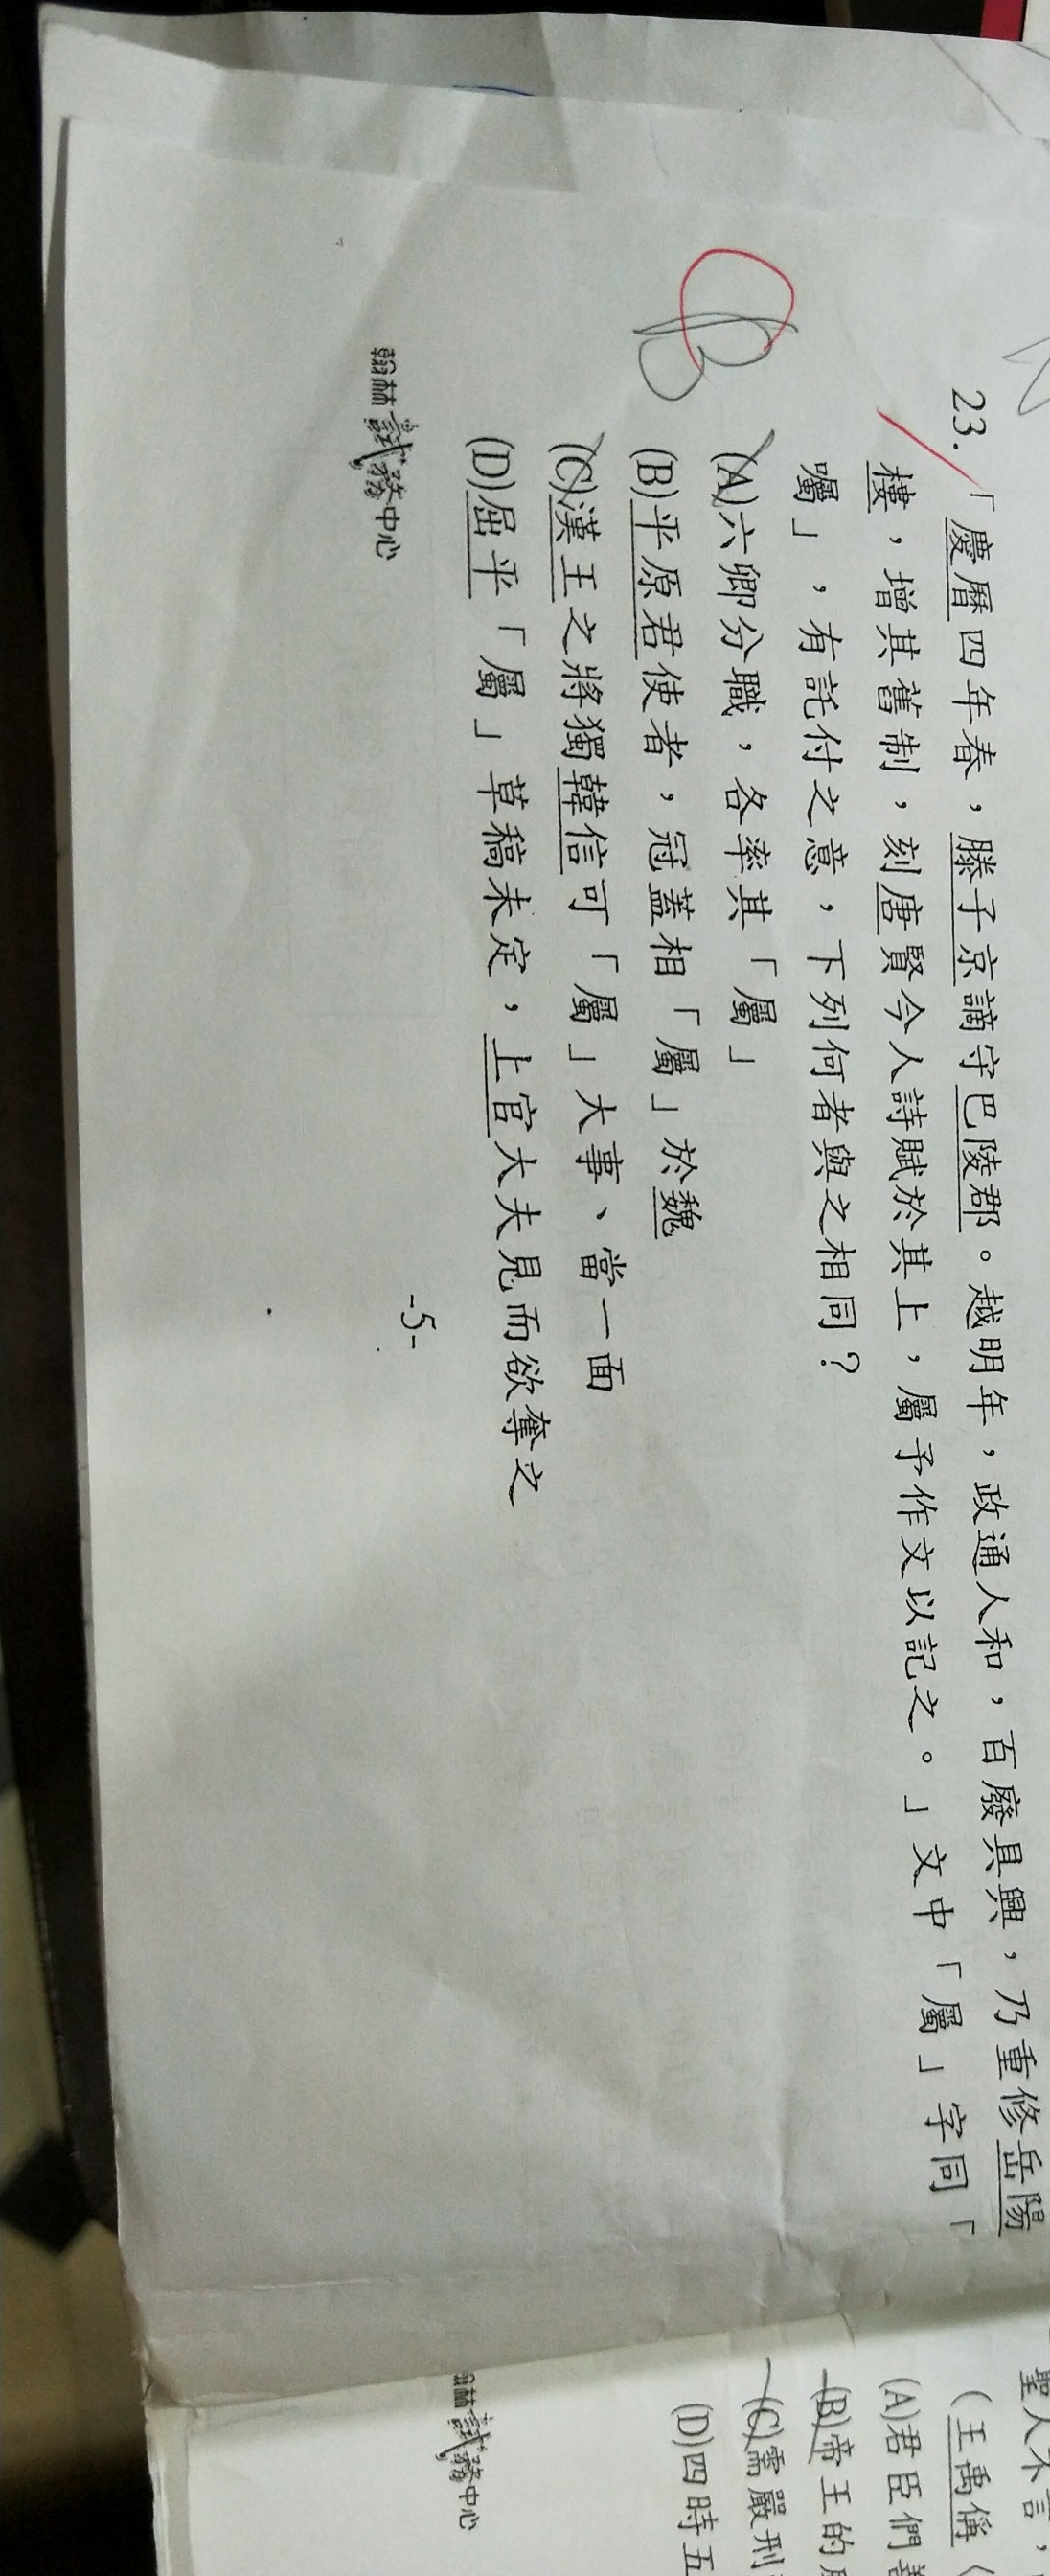 23.「慶曆四年春，滕子京謫守巴陵郡。越明年，政通人和，百廢具興，乃重修岳陽
樓，增其舊制，刻唐賢今人詩賦於其上，屬予作文以記之。」文中「屬」字同「
囑」，有託付之意，下列何者與之相同？
(A)六卿分職，各率其「屬」
(B)平原君使者，冠蓋相「屬」於魏
(C)漢王之將獨韓信可「屬」大事、當一面
(D)屈平「屬」草稿未定，上官大夫見而欲奪之
B
翰林試務中心
-5-
聖人不言，
(王禹偁《
(A)君臣們善
(B)帝王的
(C)需嚴刑
(D)四時五
翰林試務中心